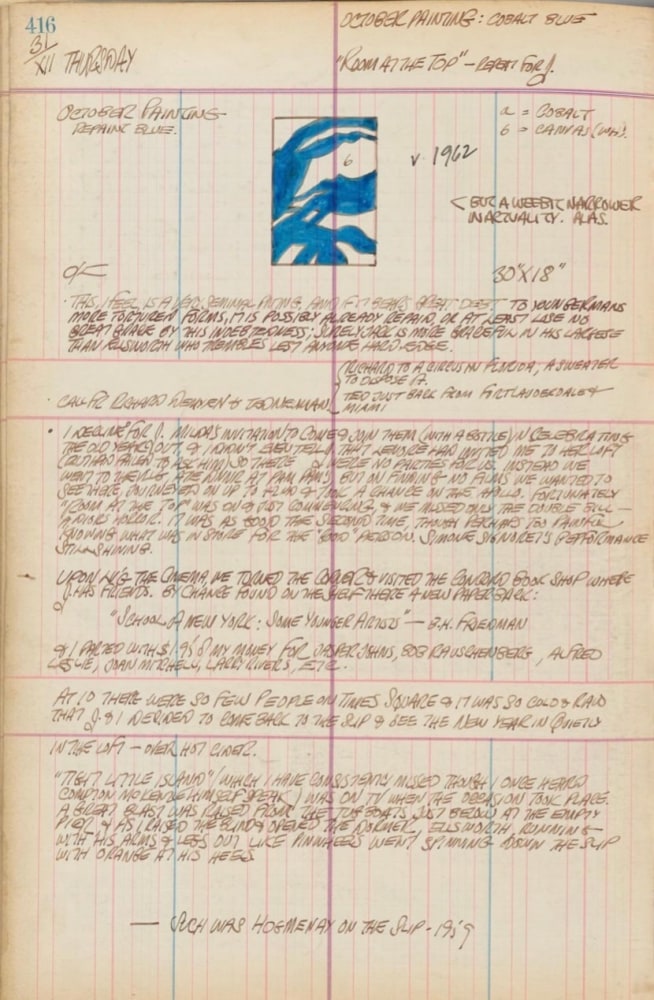 416
31
XII THURSDAY
OCTOBER PAINTING: COBALT BLUE
"ROOM AT THE TOP" - REPEAT FOR J.
OCTOBER PAINTING
REPAINT BLUE.
a = COBALT
b = CANVAS (WH).
6
v. 1962
< BUT A WEE BIT NARROWER
IN ACTUALITY. ALAS.
O/C
30" X 18"
THIS, I FEEL, IS A VERY SEMINAL PTING. AND IF IT BEARS GREAT DEBT TO YOUNGERMANS
MORE TORTURED FORMS, IT IS POSSIBLY ALREADY REPAID, OR AT LEAST LOSE NO
GREAT GRACE BY THIS INDEBTEDNESS; SURELY JACK IS MORE GRACEFUL IN HIS LARGESSE
THAN ELLSWORTH WHO TREMBLES LEST ANYONE HARD-EDGE.
CALL FR RICHARD & TED
RICHARD TO A CIRCUS IN FLORIDA, A SWEATER
TO DISPOSE OF.
TED JUST BACK FROM FORT LAUDERDALE &
MIAMI
I DECLINE FOR J. MILDA'S INVITATION TO COME & JOIN THEM (WITH A BOTTLE) IN CELEBRATING
THE OLD YEAR'S OUT, & I DIDN'T EVEN TELL J. THAT LENORE HAD INVITED ME TO HER LOFT
(BUT HAD FAILED TO ASK HIM) SO THERE WERE NO PARTIES FOR US. INSTEAD WE
WENT TO THE VLG, ATE DINNER AT PAM PAM'S, BUT ON FINDING NO FILMS WE WANTED TO
SEE THERE, JOURNEYED ON UP TO 42ND & TOOK A CHANCE ON THE APOLLO. FORTUNATELY
"ROOM AT THE TOP" WAS ON & JUST COMMENCING, & WE MISSED ONLY THE DOUBLE BILL -
A HORROR. IT WAS AS GOOD THE SECOND TIME, THOUGH PERHAPS TOO PAINFUL
KNOWING WHAT WAS IN STORE FOR THE "GOOD" PERSON. SIMONE SIGNORET'S PERFORMANCE
STILL SHINING.
UPON LV'G THE CINEMA, WE TURNED THE CORNER & VISITED THE CONCORD BOOK SHOP WHERE
J. HAS FRIENDS. BY CHANCE FOUND ON THE SHELF THERE A NEW PAPERBACK:
"SCHOOL OF NEW YORK: SOME YOUNGER ARTISTS" - B.H. FRIEDMAN
& I PARTED WITH $1.95 OF MY MONEY FOR JASPER JOHNS, BOB RAUSCHENBERG, ALFRED
LESLIE, JOAN MITCHELL, LARRY RIVERS, ETC.
AT 10 THERE WERE SO FEW PEOPLE ON TIMES SQUARE & IT WAS SO COLD & RAW
THAT J. & I DECIDED TO COME BACK TO THE SLIP & SEE THE NEW YEAR IN QUIETLY
IN THE LOFT - OVER HOT CIDER.
"TIGHT LITTLE ISLAND" (WHICH I HAVE CONSISTENTLY MISSED THOUGH I ONCE HEARD
COMPTON MCKENZIE HIMSELF SPEAK) WAS ON TV WHEN THE OCCASION TOOK PLACE.
A GREAT BLAST WAS RAISED FROM THE TUGBOATS JUST BELOW AT THE EMPTY
PIER, & AS I RAISED THE BLIND & OPENED THE DORMER, ELLSWORTH, RUNNING
WITH HIS ARMS & LEGS OUT LIKE PINWHEELS WENT SPINNING DOWN THE SLIP
WITH ORANGE AT HIS HEELS
— SUCH WAS HOGMENAY ON THE SLIP - 1959